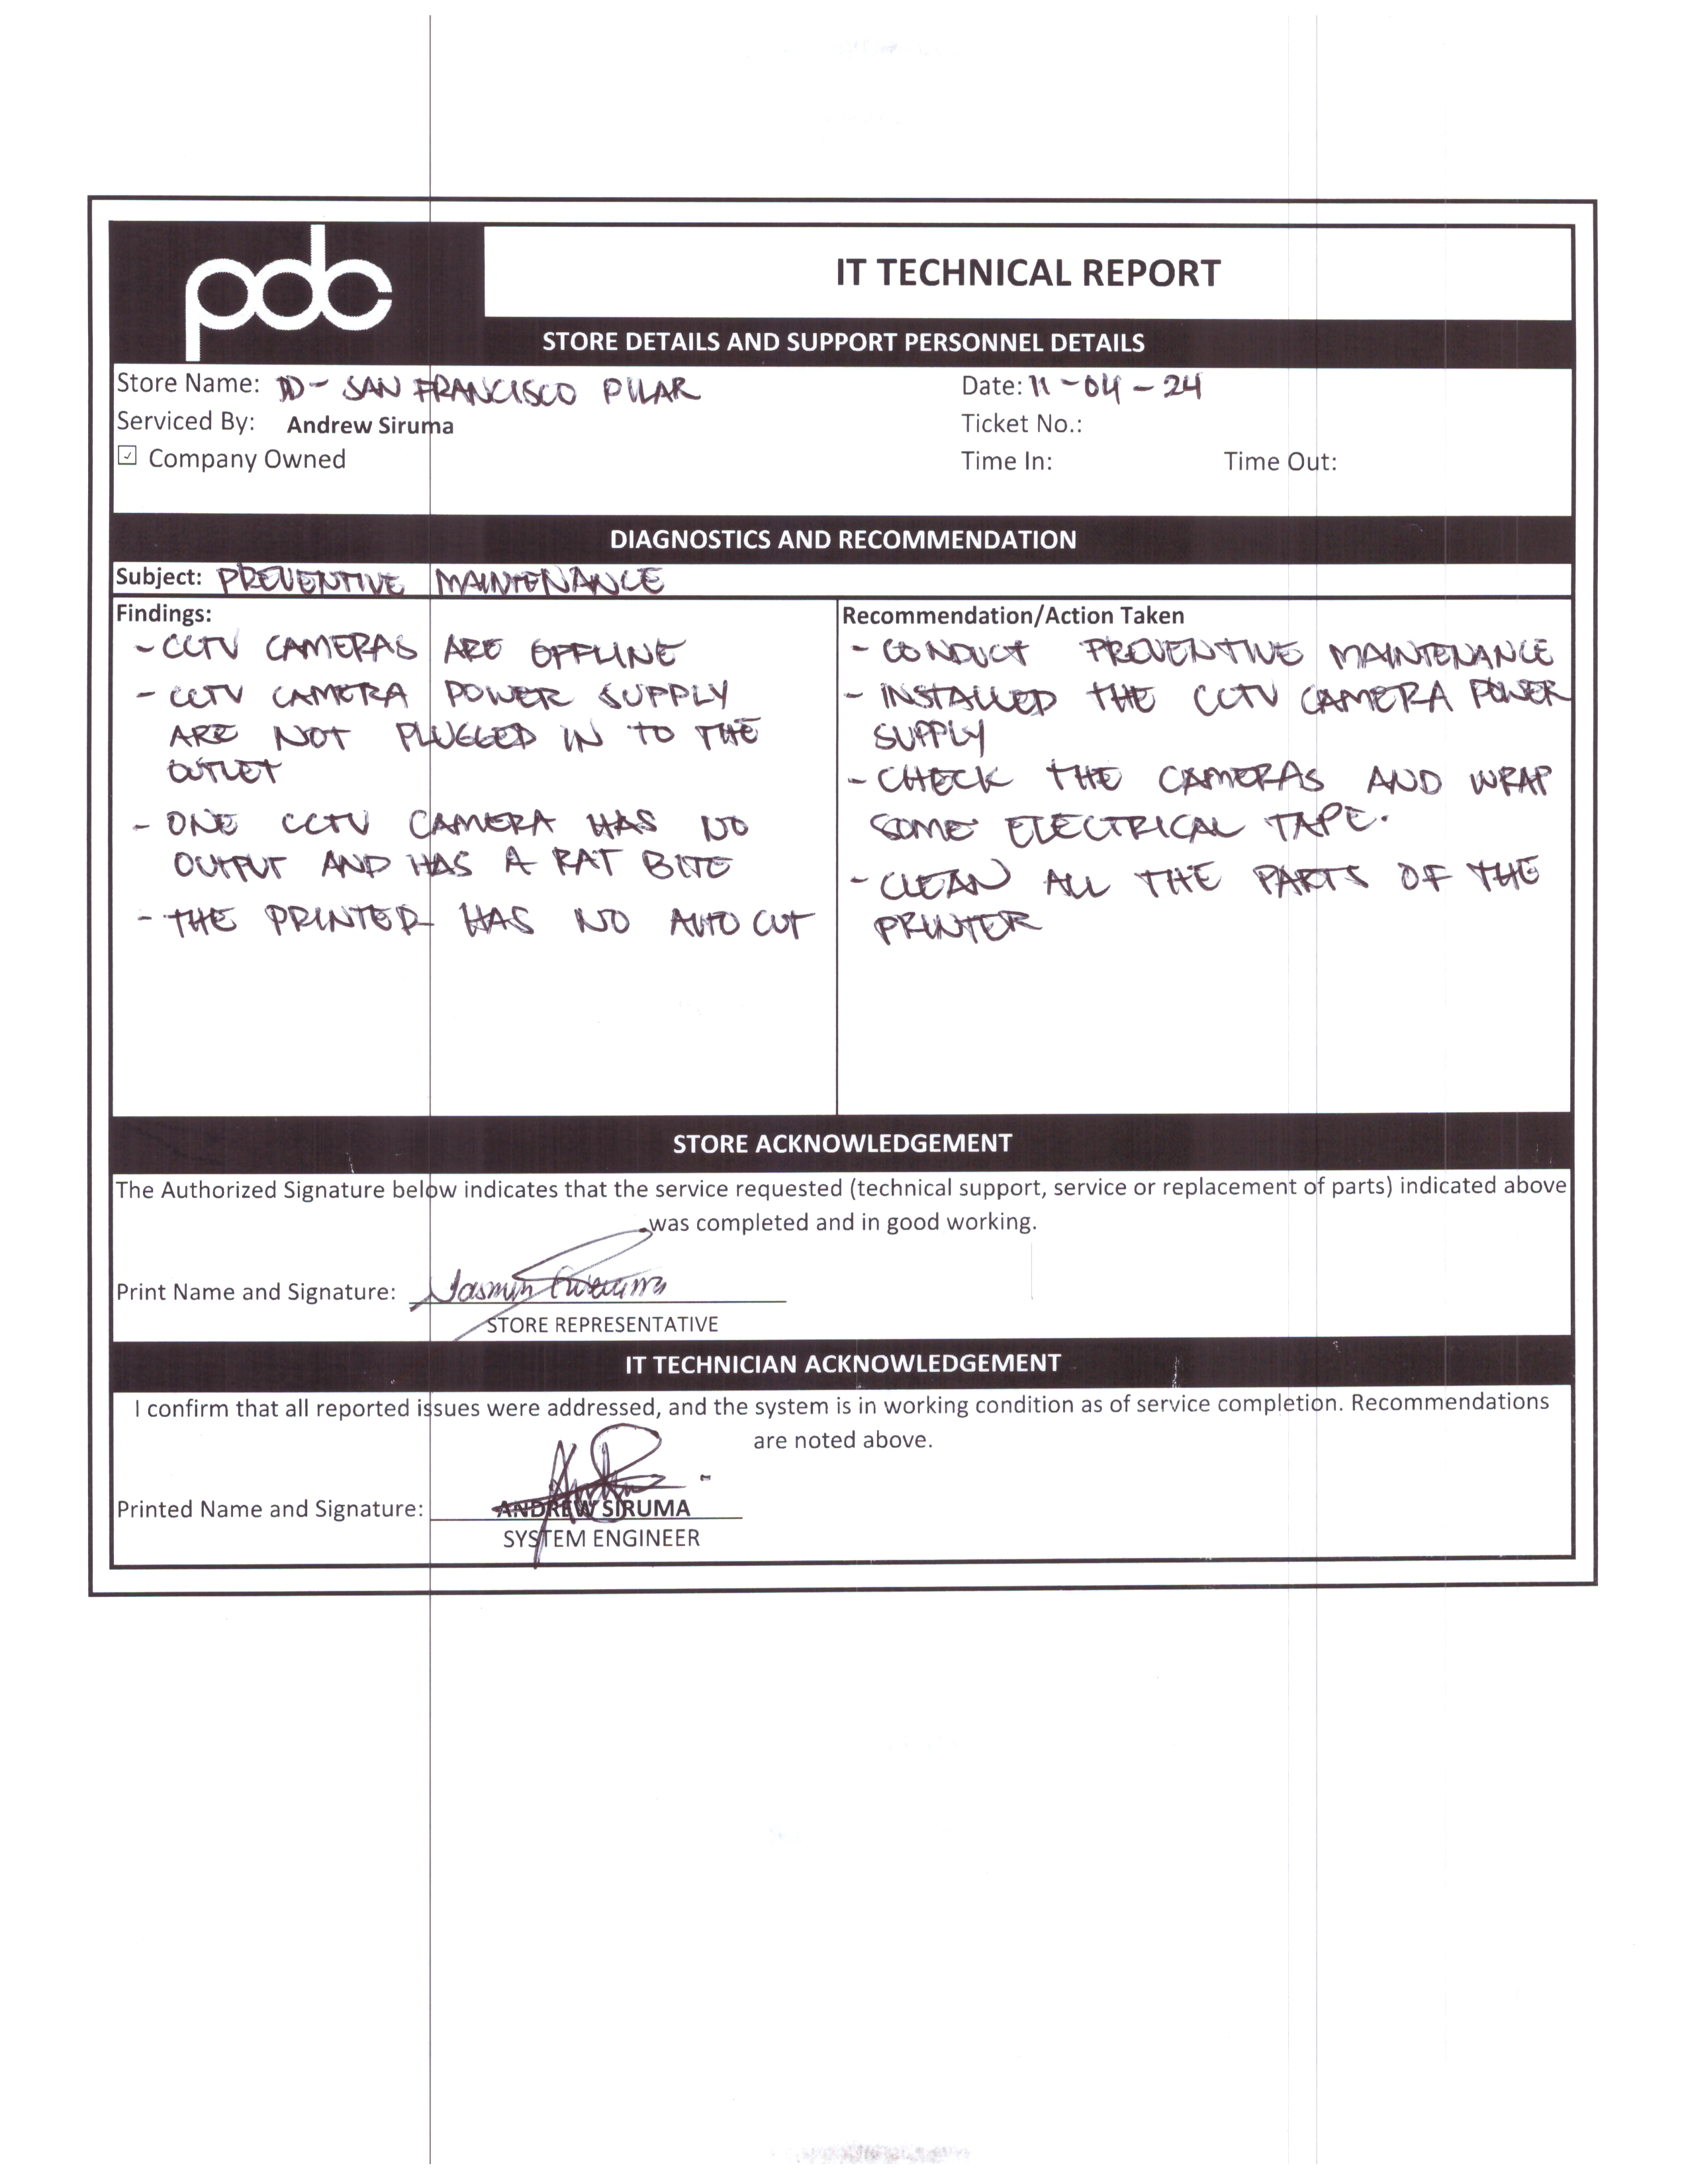 pdc
IT TECHNICAL REPORT
STORE DETAILS AND SUPPORT PERSONNEL DETAILS
Store Name: DD - SAN FRANCISCO PILAR
Date: 11-04-24
Serviced By: Andrew Siruma
Ticket No.:
☑ Company Owned
Time In: Time Out:
DIAGNOSTICS AND RECOMMENDATION
Subject: PREVENTIVE MAINTENANCE
Findings:
- CCTV CAMERAS ARE OFFLINE
- CCTV CAMERA POWER SUPPLY
ARE NOT PLUGGED IN TO THE
OUTLET
- ONE CCTV CAMERA HAS NO
OUTPUT AND HAS A RAT BITE
- THE PRINTER HAS NO AUTO CUT
Recommendation/Action Taken
- CONDUCT PREVENTIVE MAINTENANCE
- INSTALLED THE CCTV CAMERA POWER
SUPPLY
- CHECK THE CAMERAS AND WRAP
SOME ELECTRICAL TAPE.
- CLEAN ALL THE PARTS OF THE
PRINTER
STORE ACKNOWLEDGEMENT
The Authorized Signature below indicates that the service requested (technical support, service or replacement of parts) indicated above
was completed and in good working.
Print Name and Signature: Jasmin
STORE REPRESENTATIVE
IT TECHNICIAN ACKNOWLEDGEMENT
I confirm that all reported issues were addressed, and the system is in working condition as of service completion. Recommendations
are noted above.
Printed Name and Signature: ANDREW SIRUMA
SYSTEM ENGINEER